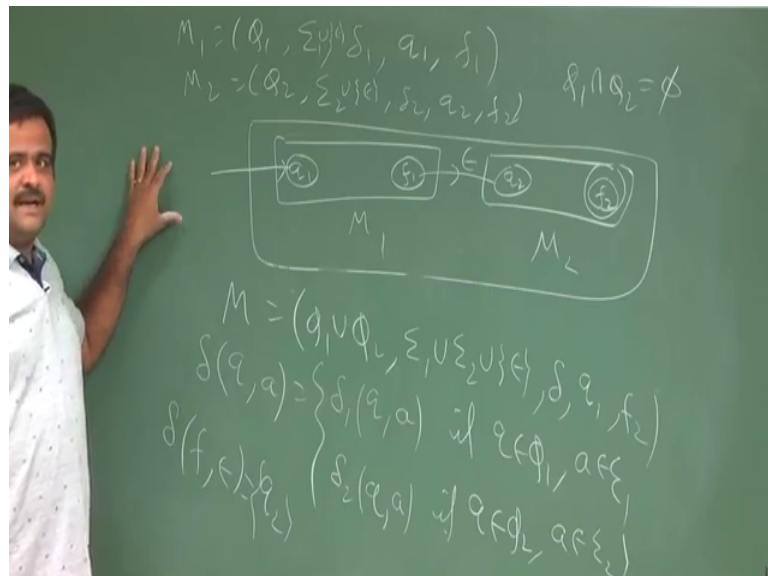 M₁ = (Q₁, Σ₁∪{ϵ}, δ₁, q₁, f₁)
M₂ = (Q₂, Σ₂∪{ϵ}, δ₂, q₂, f₂) Q₁∩Q₂ = ϕ
q₁ f₁ ϵ q₂ f₂
M₁ M₂
M = (Q₁∪Q₂, Σ₁∪Σ₂∪{ϵ}, δ, q₁, f₂)
δ(q,a) = { δ₁(q,a) if q∈Q₁, a∈Σ₁
δ(f,ϵ) = {q₂} δ₂(q,a) if q∈Q₂, a∈Σ₂}